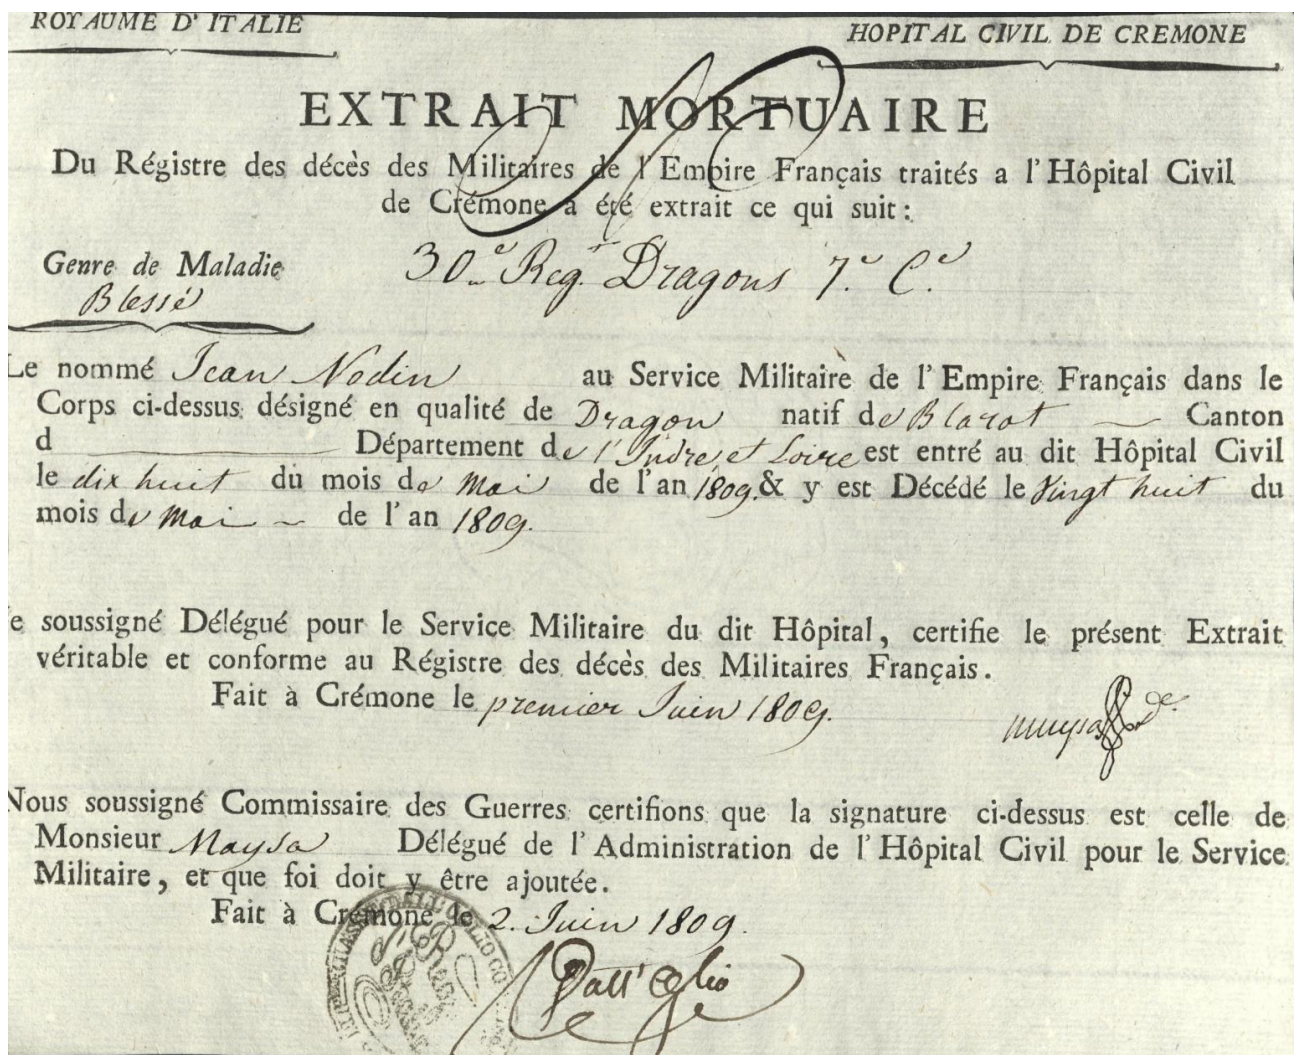 ROYAUME D'ITALIE
HOPITAL CIVIL DE CREMONE
EXTRAIT MORTUAIRE
Du Régistre des décès des Militaires de l'Empire Français traités a l'Hôpital Civil
de Crémone a été extrait ce qui suit:
Genre de Maladie
Blessé
30e Regt Dragons 7e Ce
Le nommé Jean Nodin au Service Militaire de l'Empire Français dans le
Corps ci-dessus désigné en qualité de Dragon natif de Blarot Canton
d Département de l'Indre et Loire est entré au dit Hôpital Civil
le dix huit du mois de Mai de l'an 1809 & y est Décédé le Vingt huit du
mois de Mai de l'an 1809.
Je soussigné Délégué pour le Service Militaire du dit Hôpital, certifie le présent Extrait
véritable et conforme au Régistre des décès des Militaires Français.
Fait à Crémone le premier Juin 1809.
Nous soussigné Commissaire des Guerres certifions que la signature ci-dessus est celle de
Monsieur Maysa Délégué de l'Administration de l'Hôpital Civil pour le Service
Militaire, et que foi doit y être ajoutée.
Fait à Crémone le 2. Juin 1809.
Dall'Oglio